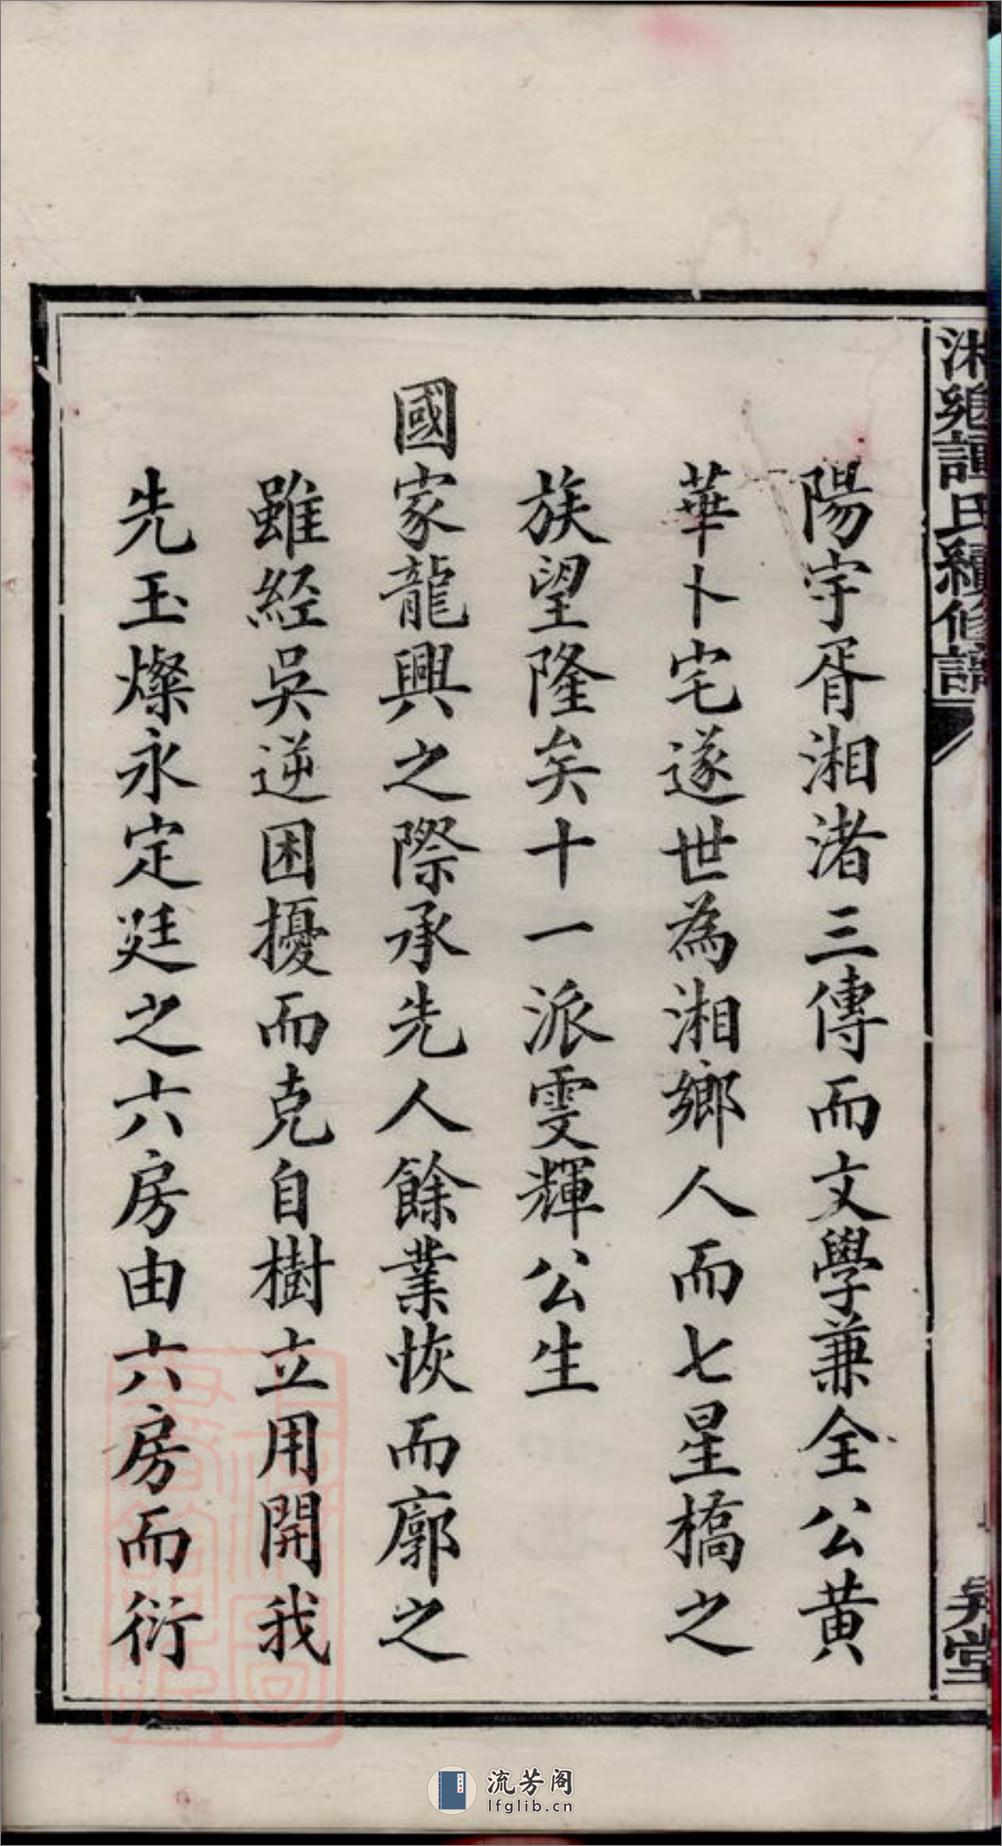 陽宇胥湘渚三傳而文學兼全公黄
華卜宅遂世為湘鄉人而七星橋之
族望隆矣十一派雯輝公生
國家龍興之際承先人餘業恢而廓之
雖經吳逆困擾而克自樹立用開我
先玉燦永定廷之六房由六房而衍
鄉譚氏續修譜
堂
流芳阁
lfglib.cn